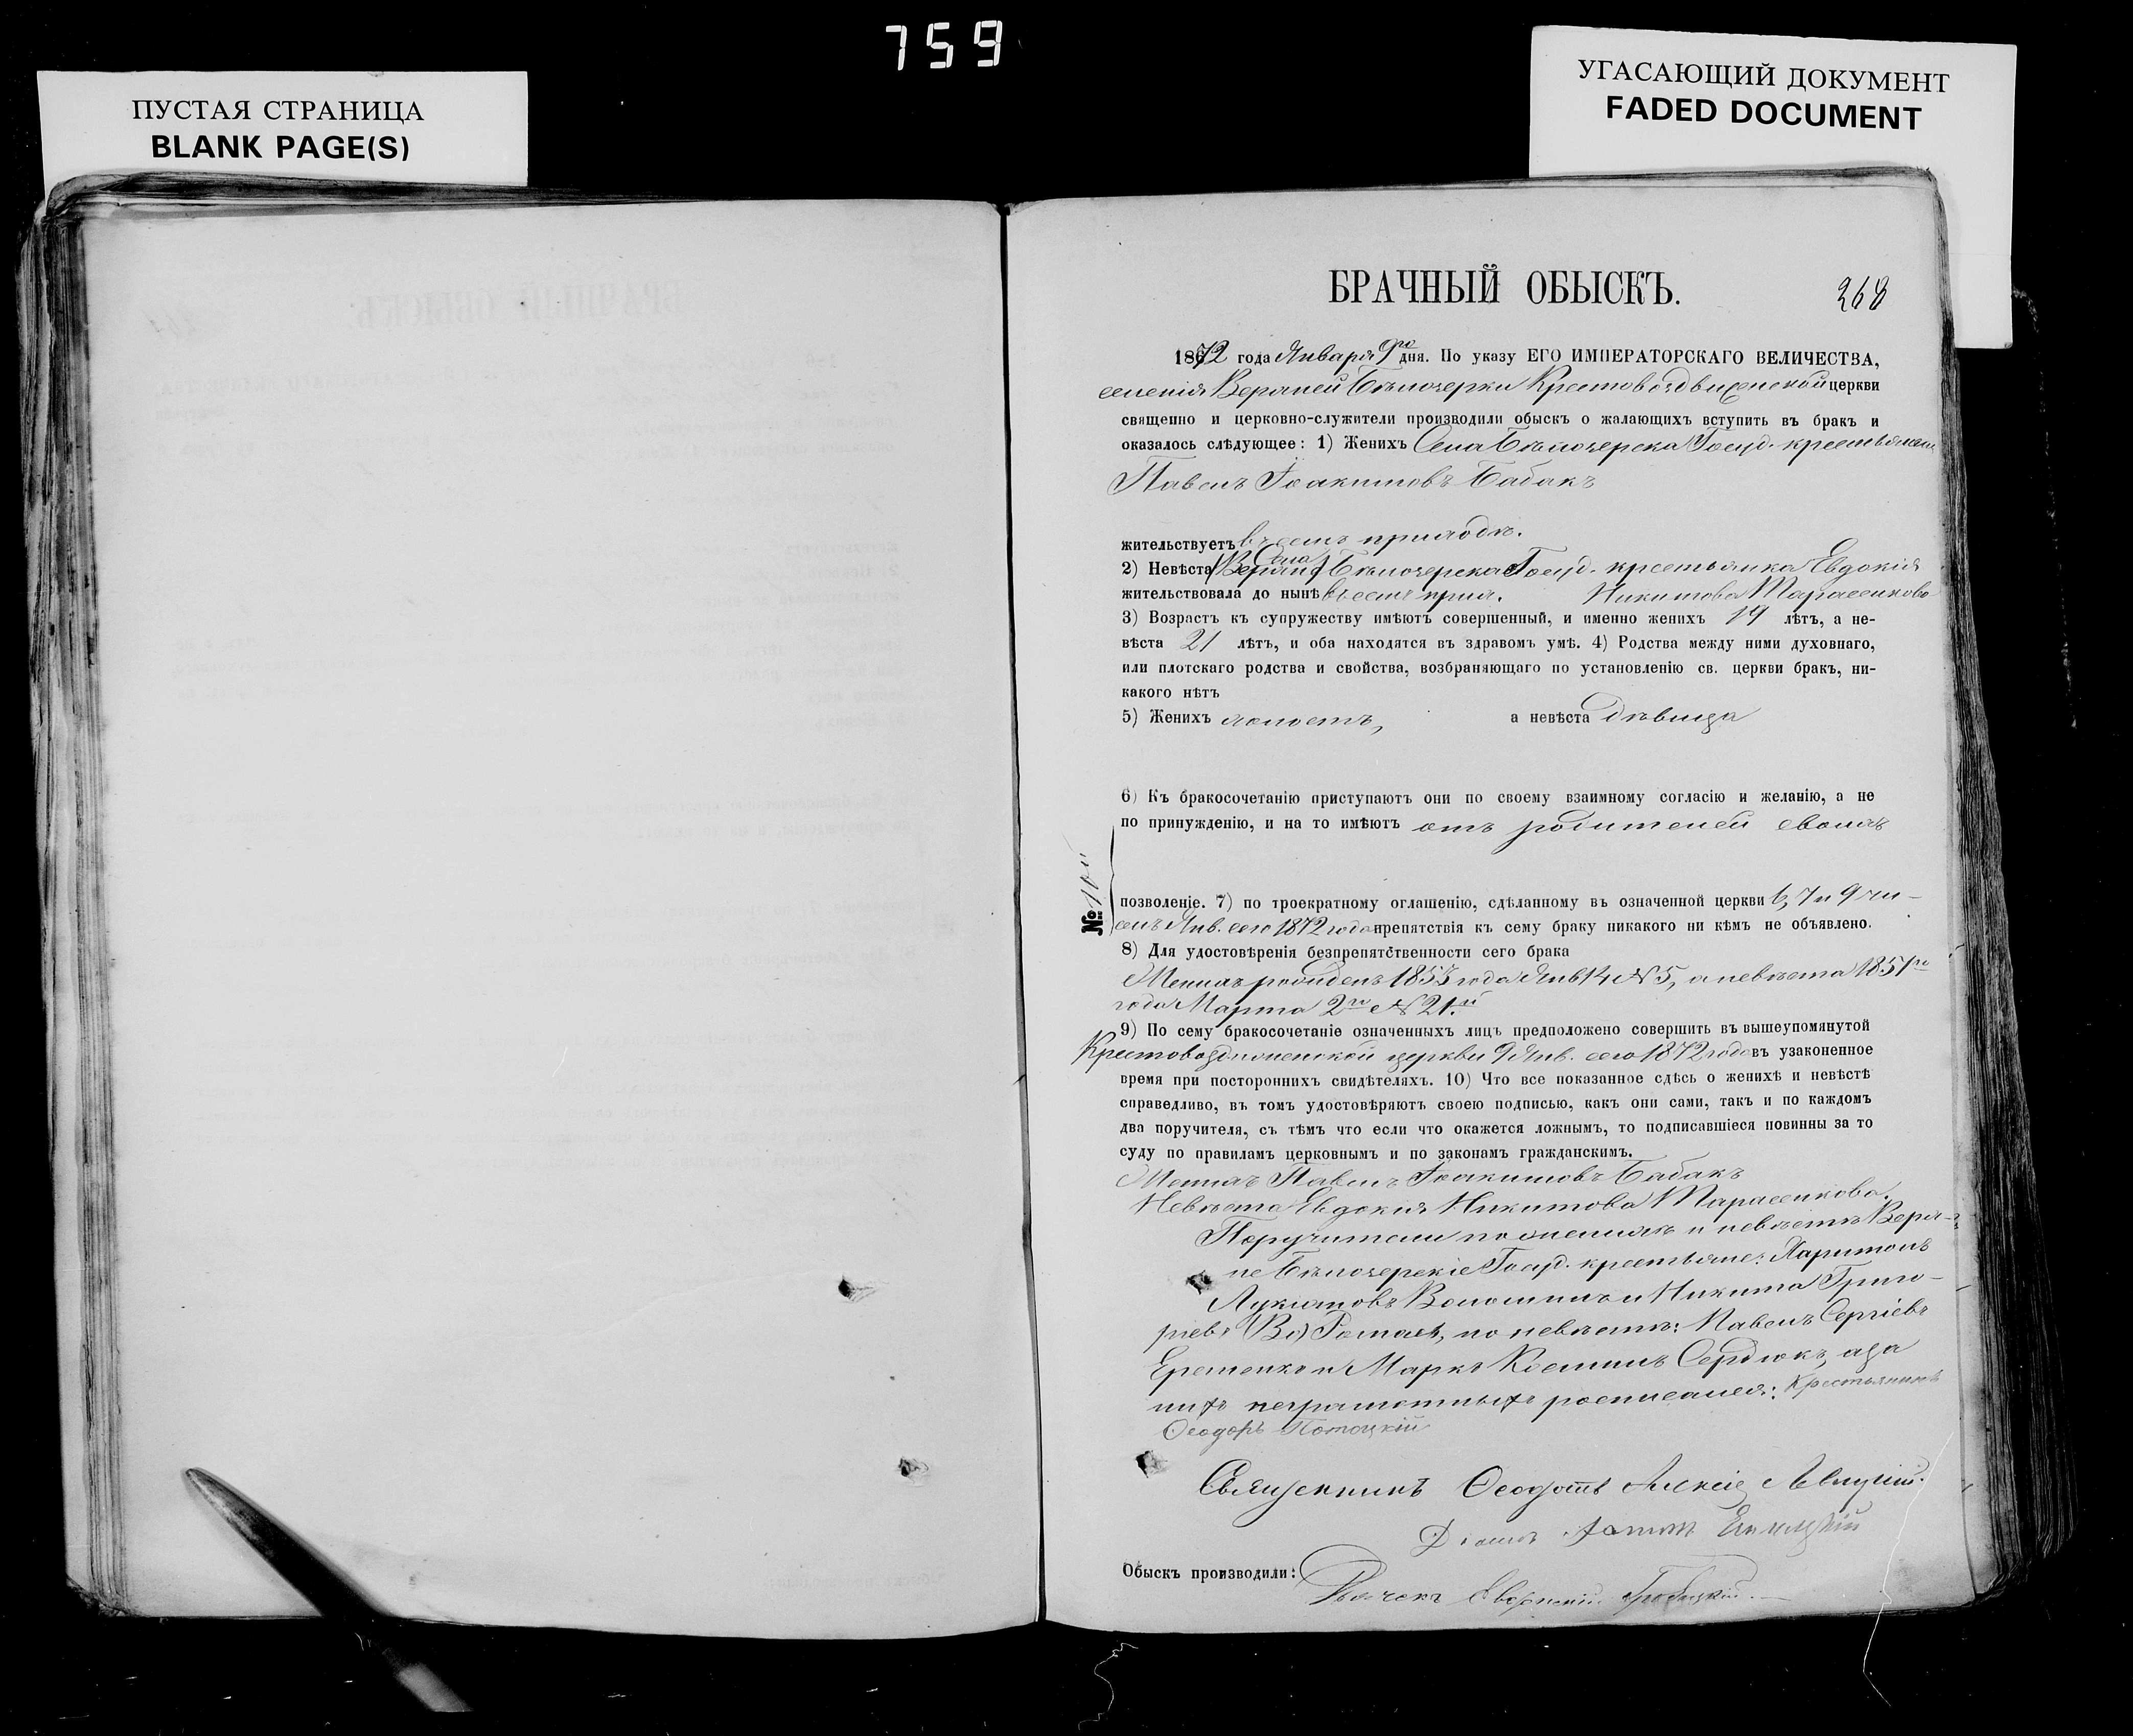 759
ПУСТАЯ СТРАНИЦА
BLANK PAGE(S)
УГАСАЮЩИЙ ДОКУМЕНТ
FADED DOCUMENT
БРАЧНЫЙ ОБЫСКЪ.
268
1872 года Января 9го дня. По указу ЕГО ИМПЕРАТОРСКАГО ВЕЛИЧЕСТВА,
селенія Верхней Бѣлозерки Крестовоздвиженской церкви
священно и церковно-служители производили обыскъ о жалающихъ вступить въ бракъ и
оказалось слѣдующее: 1) Женихъ Села Бѣлозерска Госуд. крестьянинъ
Павелъ Іоакимовъ Бабакъ
жительствуетъ въ семъ приходѣ.
2) Невѣста Села Бѣлозерска Госуд. крестьянка Евдокія
жительствовала до нынѣ въ семъ прих. Никитова Тарасенкова
3) Возрастъ къ супружеству имѣютъ совершенный, и именно женихъ 19 лѣтъ, а не-
вѣста 21 лѣтъ, и оба находятся въ здравомъ умѣ. 4) Родства между ними духовнаго,
или плотскаго родства и свойства, возбраняющаго по установленію св. церкви бракъ, ни-
какого нѣтъ
5) Женихъ холостъ, а невѣста дѣвица
6) Къ бракосочетанію приступаютъ они по своему взаимному согласію и желанію, а не
по принужденію, и на то имѣютъ отъ родителей своихъ
№
позволеніе. 7) по троекратному оглашенію, сдѣланному въ означенной церкви 6, 7 и 9 чи-
селъ Янв. сего 1872 года препятствія къ сему браку никакого ни кѣмъ не объявлено.
8) Для удостовѣренія безпрепятственности сего брака
Женихъ рожденъ 1853 года Янв 14 № 5, а невѣста 1851го
года Марта 2го № 21й
9) По сему бракосочетаніе означенныхъ лицъ предположено совершить въ вышеупомянутой
церкви 9 Янв. сего 1872 года въ узаконенное
время при постороннихъ свидѣтеляхъ. 10) Что все показанное сдѣсь о женихѣ и невѣстѣ
справедливо, въ томъ удостовѣряютъ своею подписью, какъ они сами, такъ и по каждомъ
два поручителя, съ тѣмъ что если что окажется ложнымъ, то подписавшіеся повинны за то
суду по правиламъ церковнымъ и по законамъ гражданскимъ.
Женихъ Павелъ Іоакимовъ Бабакъ
Невѣста Евдокія Никитова Тарасенкова.
Поручители по женихѣ и невѣстѣ Верх-
не Бѣлозерскіе Госуд. крестьяне: Харитонъ
Лукіановъ Волошинъ и Никита Григо-
ріевъ невѣстѣ: Павелъ Сергіевъ
Еременко и Марко Сердюкъ, а за
нихъ неграмотныхъ росписался: Крестьянинъ
Ѳеодоръ Потоцкій
Священникъ Ѳеодотъ
Обыскъ производили: